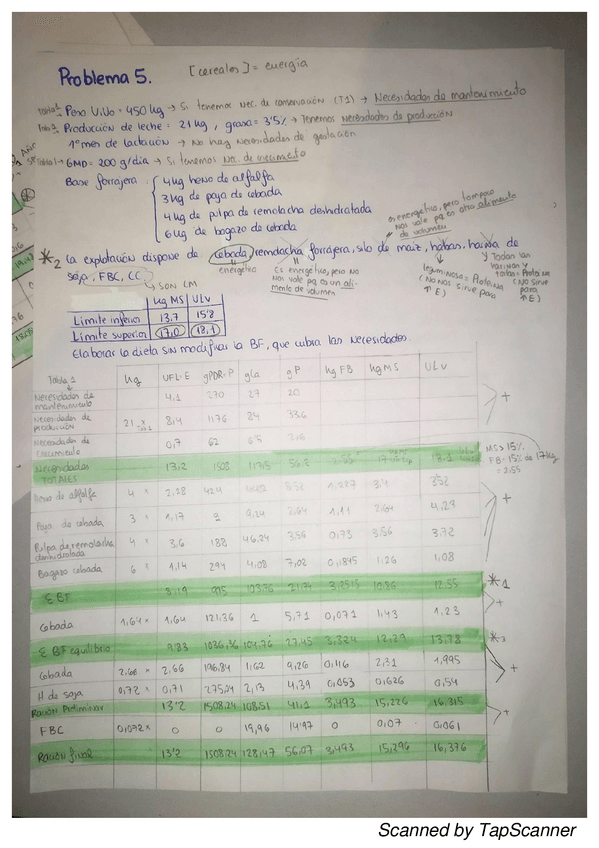 Problema 5.
[cereales] = energía
Tabla 1 Peso vivo = 450 kg → Si tenemos Nec. de conservación (T1) → Necesidades de mantenimiento
Producción de leche = 21 kg, grasa = 3'5% → Tenemos necesidades de producción
1º mes de lactación → No hay necesidades de gestación
GMD = 200 g/día → Si tenemos Nec. de crecimiento
Base forrajera: 4 kg heno de alfalfa
3 kg de paja de cebada
4 kg de pulpa de remolacha deshidratada
6 kg de bagazo de cebada
es energético, pero tampoco
nos vale pq es otro alimento
de volumen
*2 La explotación dispone de cebada, remolacha forrajera, silo de maíz, habas, harina de
soja, FBC, CC.
energético
Es energético, pero no
nos vale pq es un ali-
mento de volumen
leguminosa = Proteína
(No nos sirve para
↑ E)
y Todas las
harinas y
tortas = Proteína
(No sirve
para
↑ E)
→ SON CM
kg MS ULV
Límite inferior 13,7 15'8
Límite superior 17,0 18,1
Elaborar la dieta sin modificar la BF, que cubra las necesidades.
Tabla 1 kg UFL·E gPDR·P gCa gP kg FB kg MS ULV
Necesidades de mantenimiento 4,1 270 27 20
Necesidades de producción 21 × 8,4 1176 84 33,6
Necesidades de crecimiento 0,7 62 6'5
Necesidades TOTALES 13,2 1508 117'5 18,1
MS > 15%
FB = 15% de 17 kg
= 2.55
Heno de alfalfa 4 × 2,28 424 1,287 3,4
Paja de cebada 3 × 1,17 9,24 2,64 1,11 2,64 4,29
Pulpa de remolacha deshidratada 4 × 3,6 188 46,24 3,56 0,73 3,56 3,72
Bagazo cebada 6 × 1,14 294 4,08 7,02 0,1845 1,26 1,08
Σ BF 10,86 12,55 *1
Cebada 1,64 × 1,64 121,36 1 5,71 0,071 1,43 1,23
Σ BF equilibrio 9,83 1036,36 104,76 27,45 3,324 12,29 13,78 *3
Cebada 2,66 × 2,66 196,84 1,62 9,26 0,116 2,31 1,995
H. de soja 0,72 × 0,71 275,24 2,13 4,39 0,053 0,626 0,54
Ración Preliminar 13'2 1508,24 108,51 41,1 3,493 15,226 16,315
FBC 0,072 × 0 0 19,96 14'97 0 0,07 0,061
Ración final 13'2 1508,24 128,47 56,07 3,493 15,296 16,376
Scanned by TapScanner